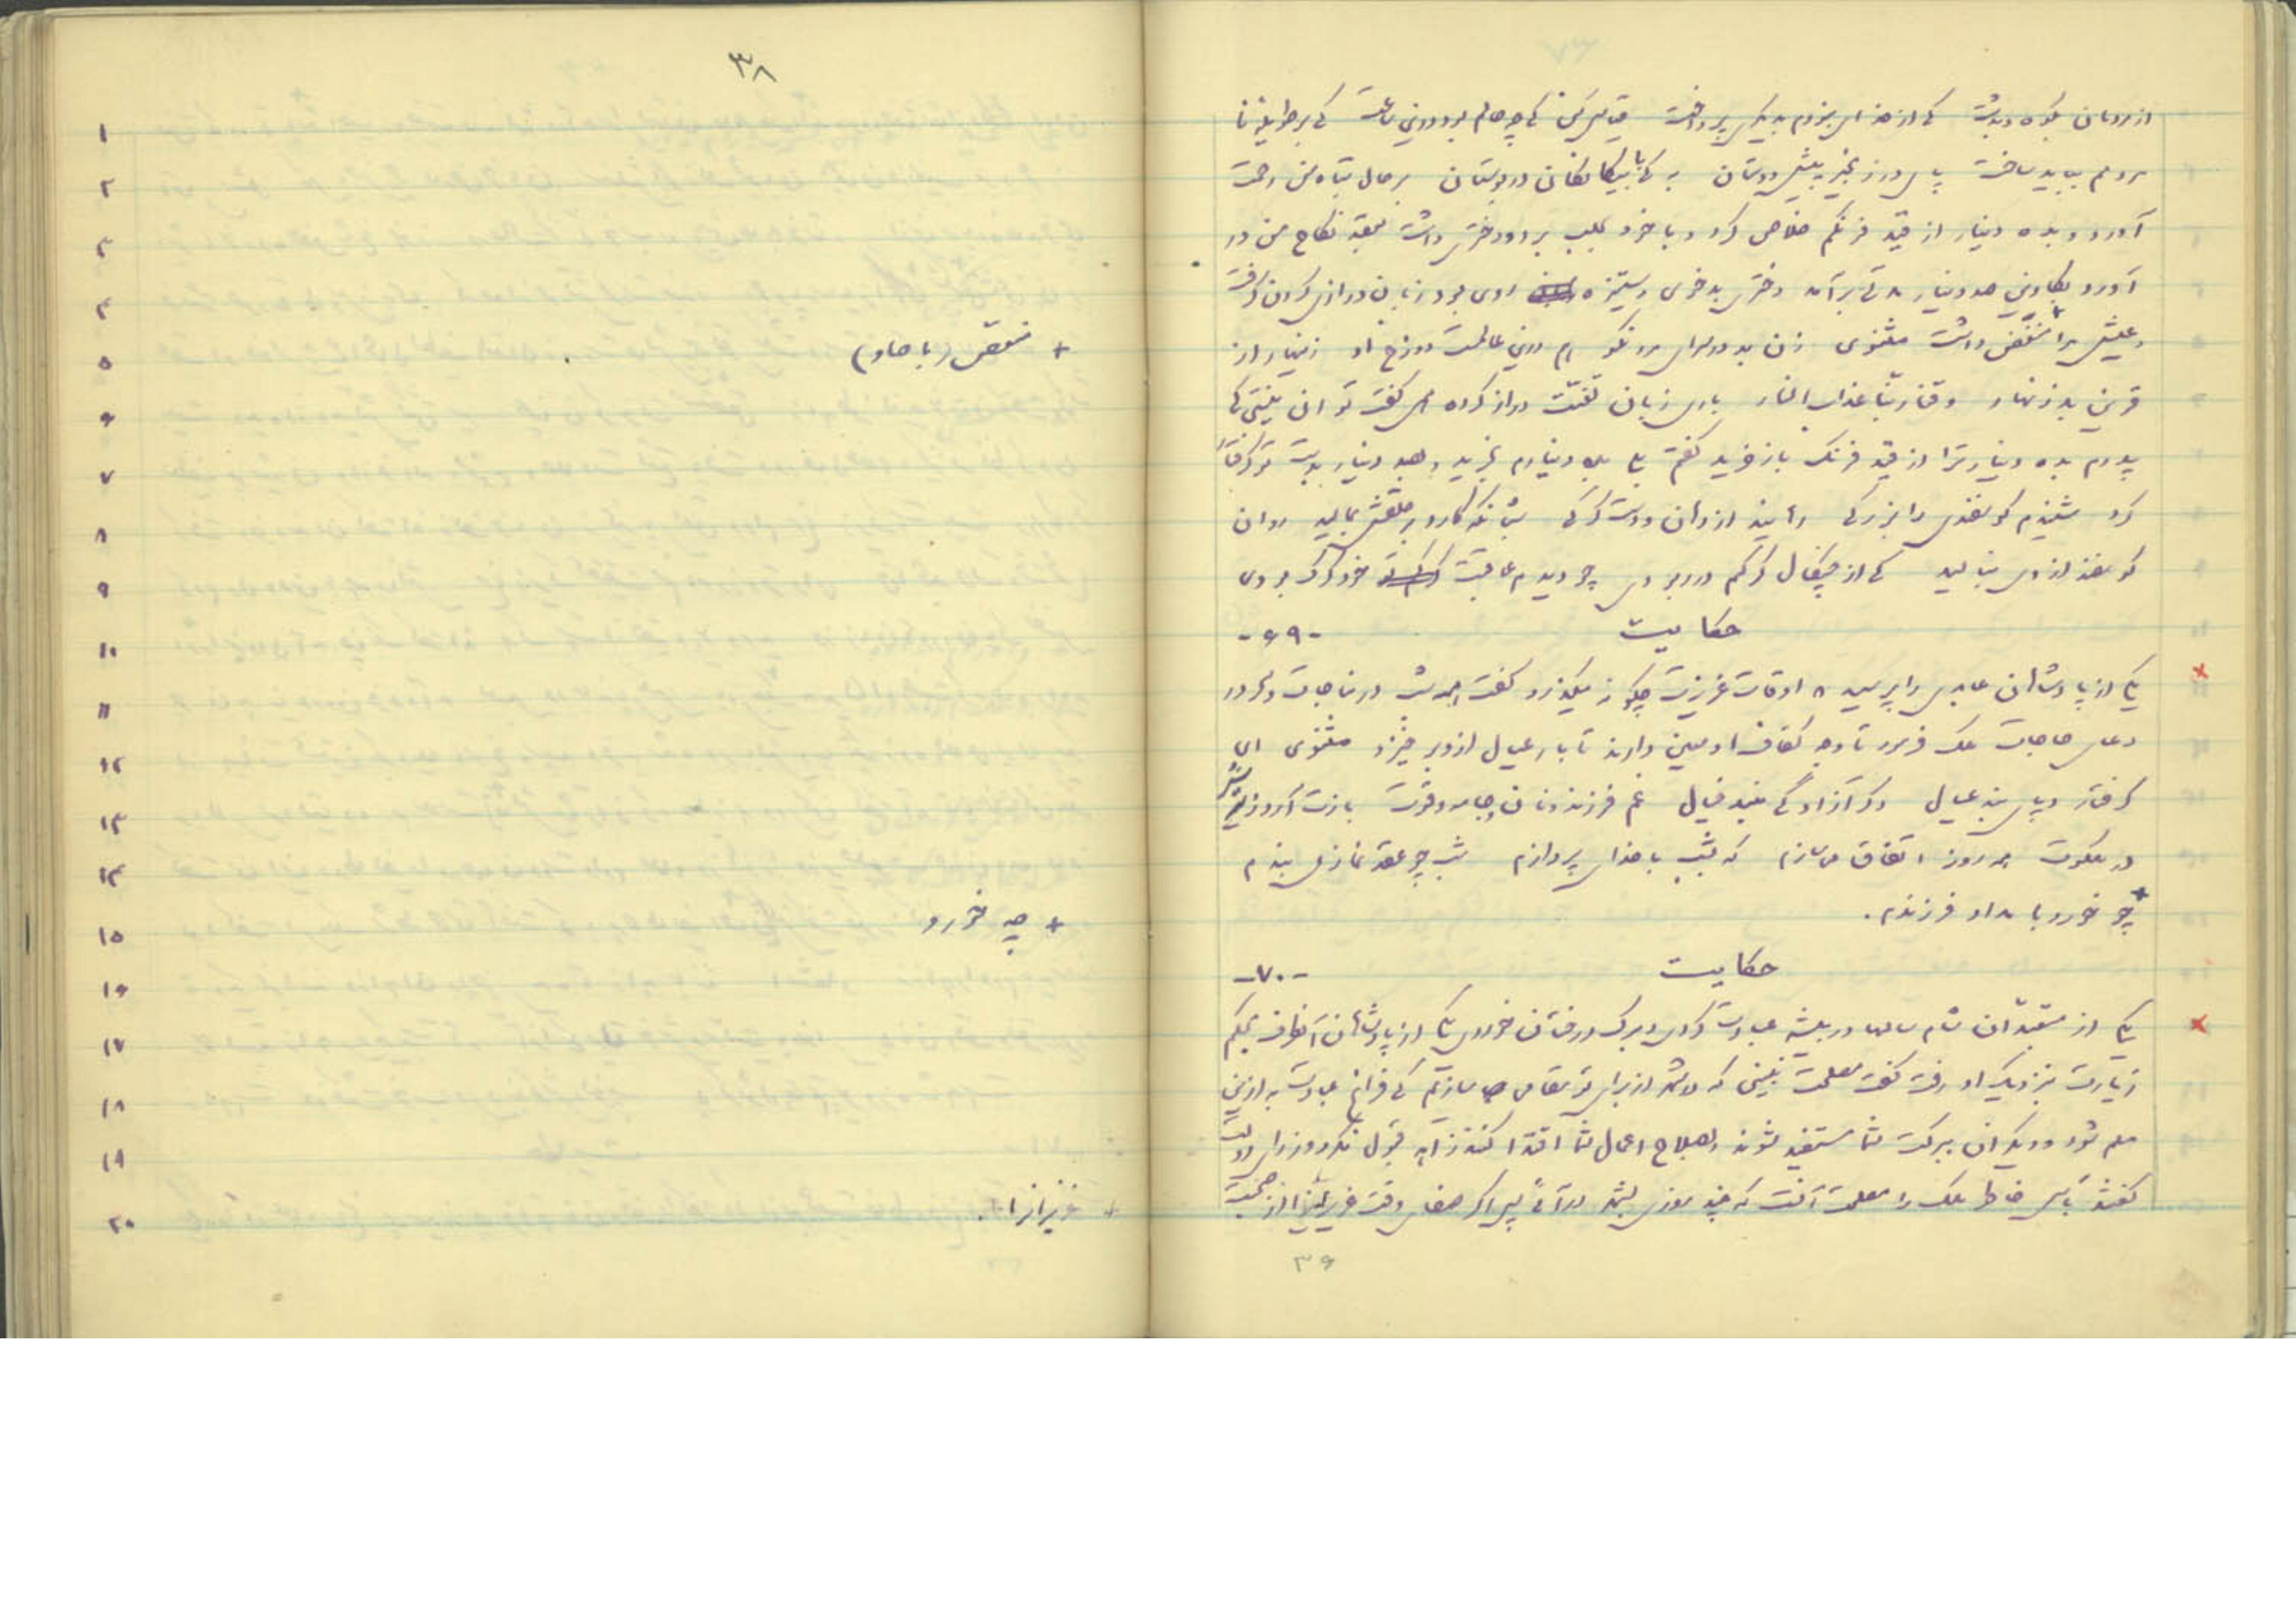 از مردمان بکوه و بدشت که از خدای نبودم بدیگری پرداخت قیاس کن که چه حالم بود درین ساعت که بر طویله نا
مردم بباید ساخت پای در زنجیر پیش دوستان به که با بیگانگان در بوستان بر حال تباه من رحمت
آورد و بده دینار از قید فرنگم خلاص کرد و با خود بحلب برد و دختری داشت بعقد نکاح من در
آورد بکاوین صد دینار مدتی برآمد دختری بدخوی و ستیزه روی بود زبان درازی کردن گرفت
و عیش مرا منغض داشت مثنوی زن بد در سرای مرد نکو هم درین عالمست دوزخ او زینهار از
قرین بد زنهار وقنا ربنا عذاب النار باری زبان تعنت دراز کرده می گفت تو آن نیستی که
پدرم بده دینار ترا از قید فرنگ باز خرید گفتم بلی بده دینارم بخرید و بصد دینار بدست تو گرفتار
کرد شنیدم گوسفندی را بزرگی رهانید از دهان و دست گرگی شبانگه کارد بر حلقش بمالید روان
گوسفند از وی بنالید که از چنگال گرگم در ربودی چو دیدم عاقبت خود گرگ بودی
حکایت -۶۹-
یکی از پادشاهان عابدی را پرسید که اوقات عزیزت چگونه میگذرد گفت همه شب در مناجات و سحر در
دعای حاجات ملک فرمود تا وجه کفاف او معین دارند تا بار عیال از دوبر خیزد مثنوی ای
گرفتار و پای بند عیال دگر آزادگی مبند خیال غم فرزند و نان و جامه و قوت بازت آرد ز سیر
در ملکوت همه روز اتفاق می سازم که بشب با خدای پردازم شب چو عقد نماز می بندم
چو خورد بامداد فرزندم.
حکایت -۷۰-
یکی از متعبدان شام سالها در بیشه عبادت کردی و برگ درختان خوردی یکی از پادشاهان آنطرف بحکم
زیارت نزدیک او رفت گفت مصلحت بینی که در شهر از برای تو مقامی سازیم که فراغ عبادت به ازین
میسر شود و دیگران ببرکت شما مستفید شوند و بصلاح اعمال شما اقتدا کنند زاهد قبول نکرد وزرای دولت
گفتند پاس خاطر ملک را مصلحت آنست که چند روزی بشهر در آئی پس اگر صفای وقت عزیزانرا از صحبت
۳۶
۳۸
۱
۲
۳
۴
۵ + منغص (با صاد)
۶
۷
۸
۹
۱۰
۱۱
۱۲
۱۳
۱۴
۱۵ + چه خورد
۱۶
۱۷
۱۸
۱۹
۲۰ + عزیزانرا.